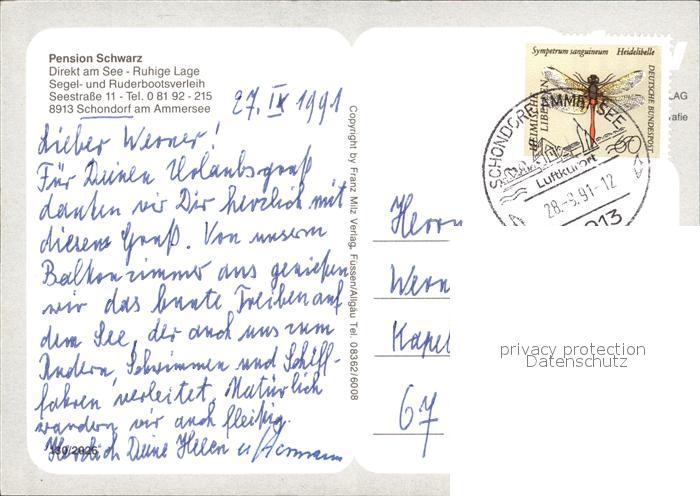 Pension Schwarz
Direkt am See - Ruhige Lage
Segel- und Ruderbootsverleih
Seestraße 11 - Tel. 0 81 92 - 215
8913 Schondorf am Ammersee
27. IX 1991
Lieber Werner!
Für Deinen Urlaubsgruß
danken wir Dir herzlich mit
diesem Gruß. Von unserm
Balkonzimmer aus genießen
wir das bunte Treiben auf
dem See, der auch uns zum
Rudern, Schwimmen und Schiff-
fahren verleitet. Natürlich
wandern wir auch fleißig.
Herzlich Deine Helen u. Hermann
130/2026
Copyright by Franz Milz Verlag, Füssen/Allgäu Tel. 08362/6008
Sympetrum sanguineum Heidelibelle
HEIMISCHE LIBELLEN
DEUTSCHE BUNDESPOST
60
SCHONDORF, AMMERSEE
Luftkurort
28.-9.91-12
8913
Herrn
Wern
Kapel
67
privacy protection
Datenschutz